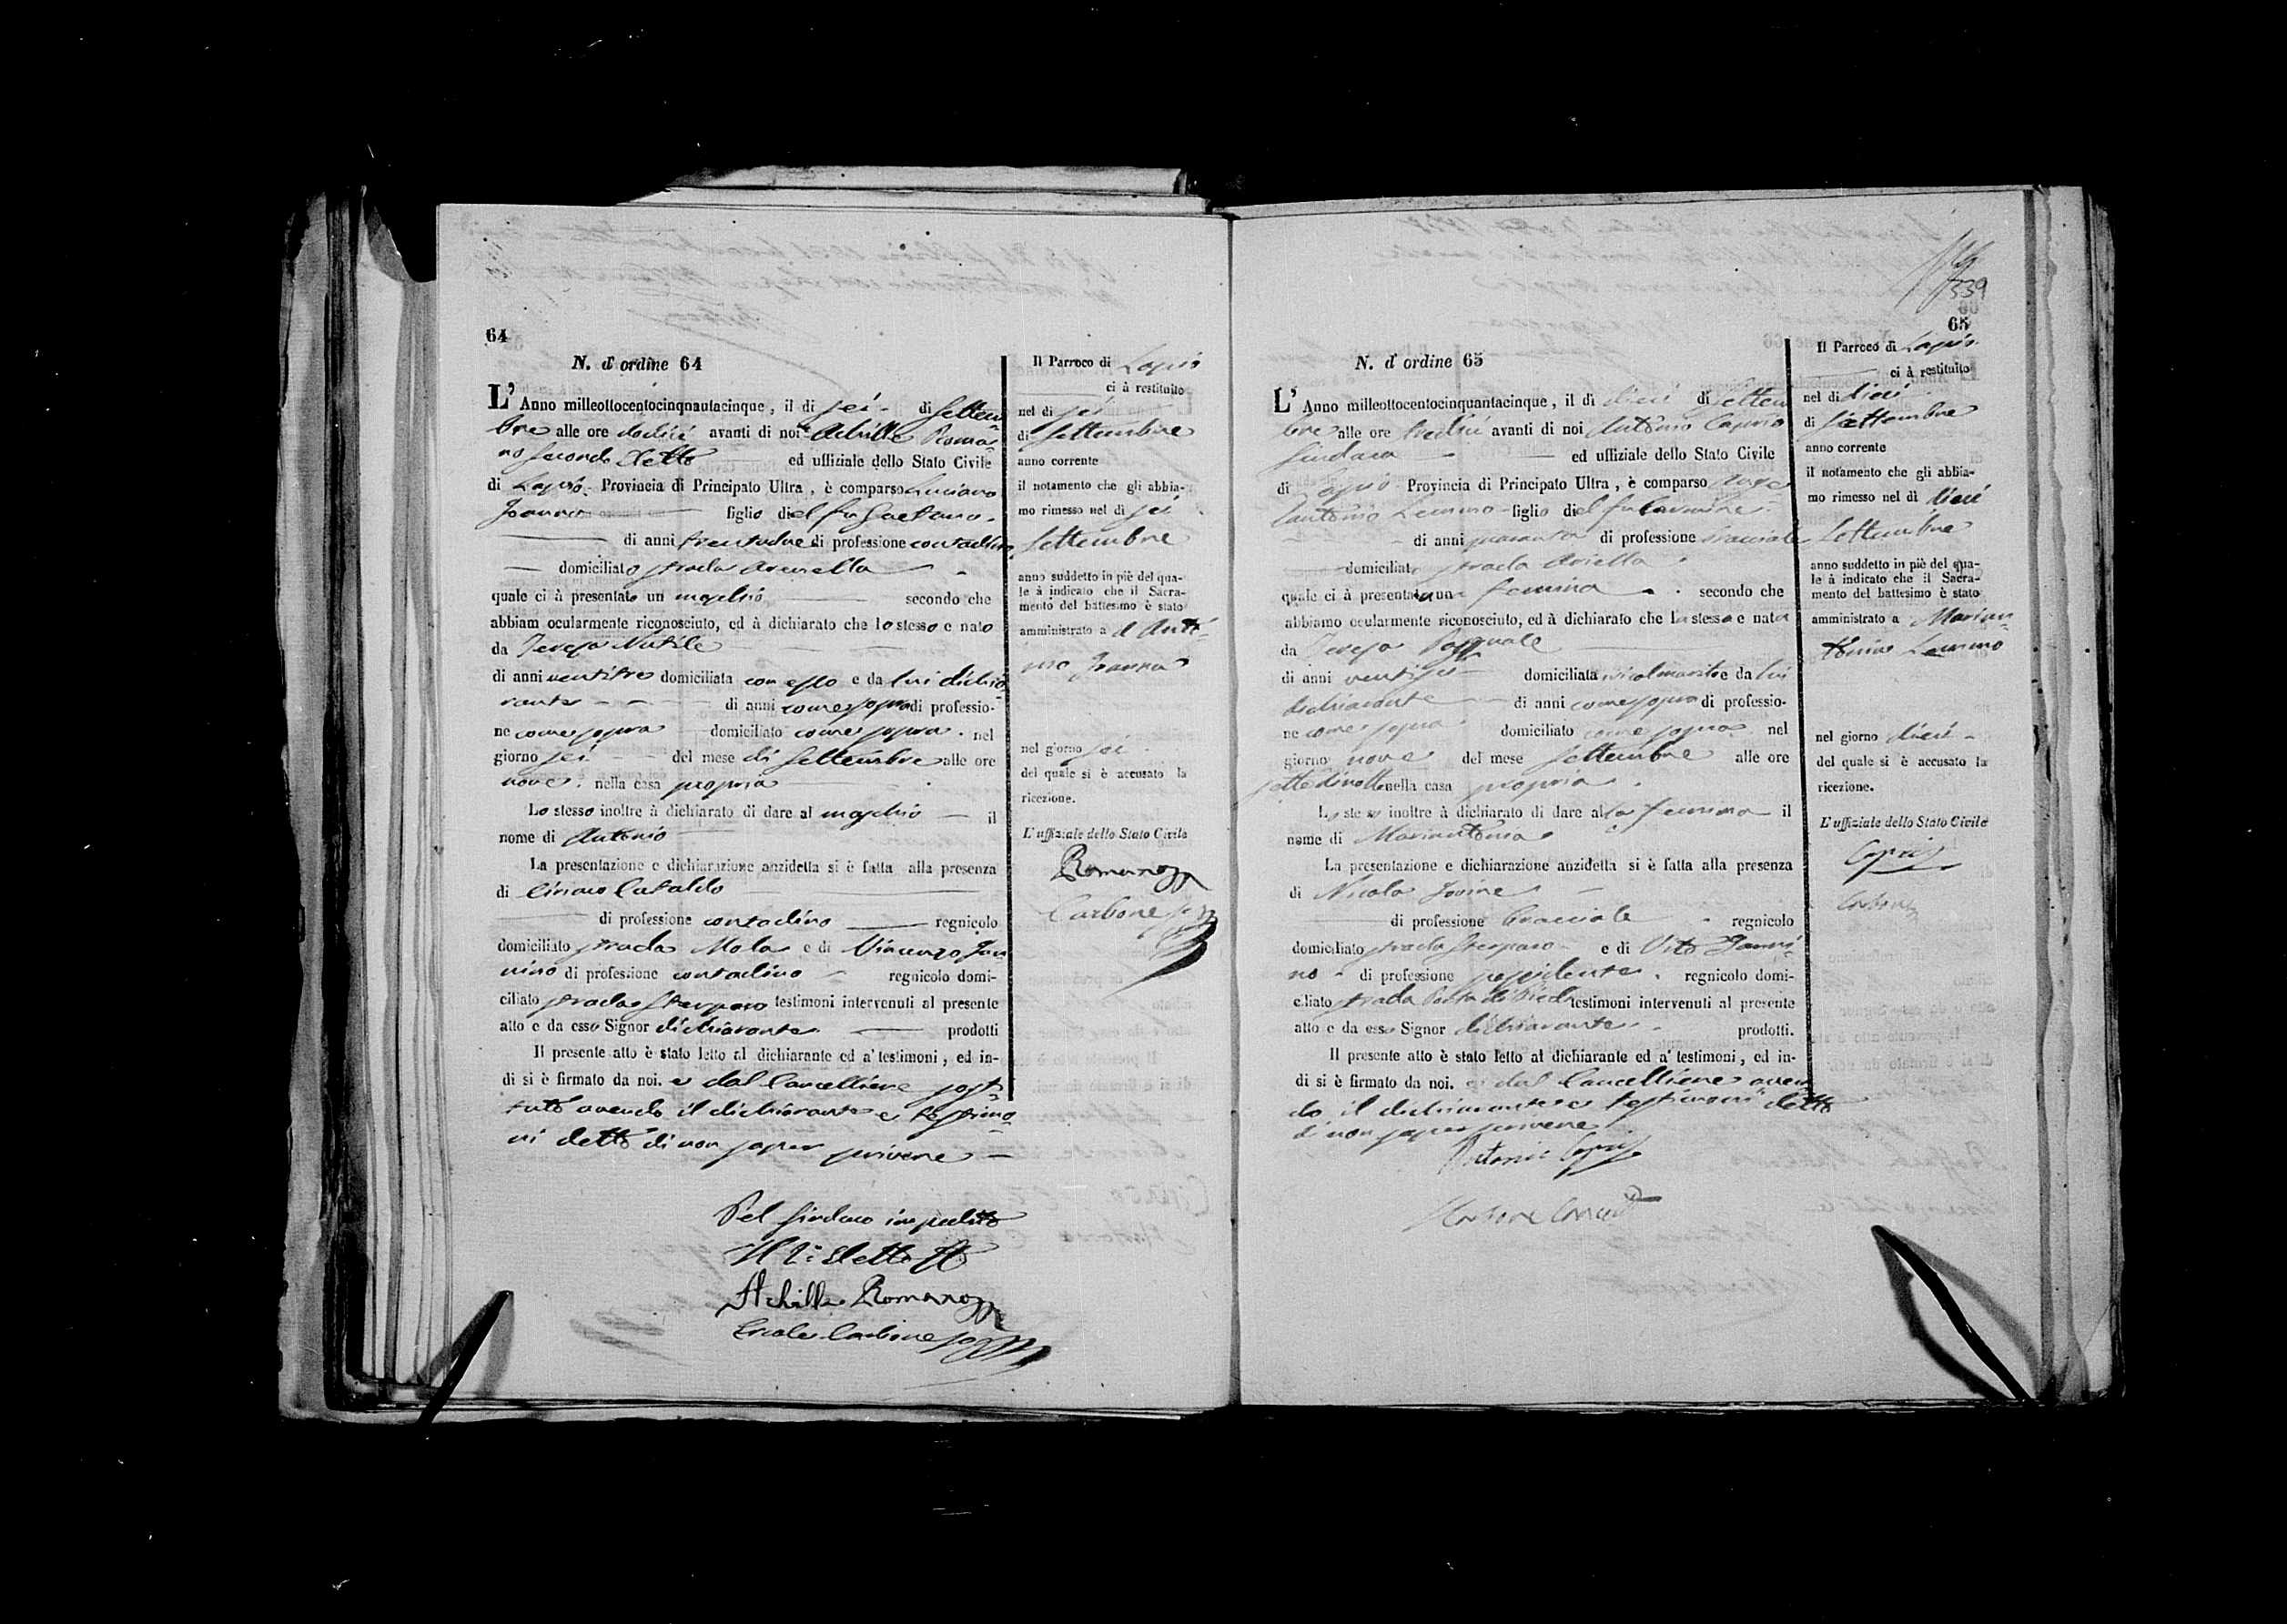 64
N. d'ordine 64
L' Anno milleottocentocinquantacinque, il di sei di Settem
bre alle ore dodici avanti di noi Achille Roma
no secondo Eletto ed uffiziale dello Stato Civile
di Lapio Provincia di Principato Ultra, è comparso Luciano
Joanna figlio del fu Gaetano
di anni trentadue di professione contadino
domiciliato strada
quale ci à presentato un maschio secondo che
abbiam ocularmente riconosciuto, ed à dichiarato che lo stesso e nato
da Teresa Nutile
di anni ventitre domiciliata con esso e da lui dichia
rante di anni come sopra di professio-
ne come sopra domiciliato come sopra nel
giorno sei del mese di Settembre alle ore
nove nella casa propria
Lo stesso inoltre à dichiarato di dare al maschio il
nome di Antonio
La presentazione e dichiarazione anzidetta si è fatta alla presenza
di Ciriaco Cataldo
di professione contadino regnicolo
domiciliato strada Mola e di Vincenzo Jan
nino di professione contadino regnicolo domi-
ciliato strada Sterparo testimoni intervenuti al presente
atto e da esso Signor dichiarante prodotti
Il presente atto è stato letto al dichiarante ed a' testimoni, ed in-
di si è firmato da noi. e dal Cancelliere sosti
tuto avendo il dichiarante e testimo
ni detto di non saper scrivere
Pel Sindaco impedito
Il 2º Eletto
Achille Romano
Carbone
Il Parroco di Lapio
ci à restituito
nel di sei
di Settembre
anno corrente
il notamento che gli abbia-
mo rimesso nel di sei
Settembre
anno suddetto in piè del qua-
le à indicato che il Sacra-
mento del battesimo è stato
amministrato a d Anto
nio Joanna
nel giorno sei
del quale si è accusato la
ricezione.
L'uffiziale dello Stato Civile
Romano
Carbone
339
65
N. d'ordine 65
L' Anno milleottocentocinquantacinque, il dì dieci di Settem
bre alle ore tredici avanti di noi Antonio Caprio
Sindaco ed uffiziale dello Stato Civile
di Lapio Provincia di Principato Ultra, è comparso Arcan
figlio del fu Carmine
di anni quaranta di professione bracciale
domiciliato strada Ariella
quale ci à presentata una femina secondo che
abbiamo ocularmente riconosciuto, ed à dichiarato che la stessa e nata
da Teresa Pasquale
di anni ventisei domiciliata col marito e da lui
dichiarante di anni come sopra di professio-
ne come sopra domiciliato come sopra nel
giorno nove del mese Settembre alle ore
sette di notte nella casa propria
Lo stesso inoltre à dichiarato di dare alla femina il
nome di Mariantonia
La presentazione e dichiarazione anzidetta si è fatta alla presenza
di Nicola Jovine
di professione bracciale regnicolo
domiciliato strada Sterparo e di Vito Janni
no di professione possidente regnicolo domi-
ciliato strada testimoni intervenuti al presente
atto e da esso Signor dichiarante prodotti.
Il presente atto è stato letto al dichiarante ed a' testimoni, ed in-
di si è firmato da noi. e dal Cancelliere aven
do il dichiarante e testimoni detto
di non saper scrivere
Antonio Caprio
Carbone
Il Parroco di Lapio
ci à restituito
nel di dieci
di Settembre
anno corrente
il notamento che gli abbia-
mo rimesso nel dì dieci
Settembre
anno suddetto in piè del qua-
le à indicato che il Sacra-
mento del battesimo è stato
amministrato a Marian
tonia
nel giorno dieci
del quale si è accusato la
ricezione.
L'uffiziale dello Stato Civile
Caprio
Carbone